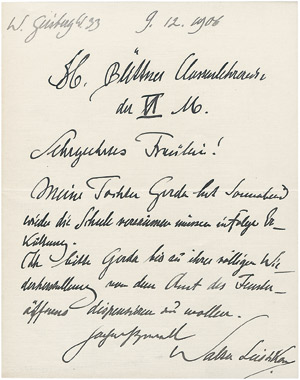 W. 33 9. 12. 1906
Frl. Blüthner Klassenlehrerin
der VI M.
Sehrgeehrtes Fräulein!
Meine Tochter Gerda hat Sonnabend
wieder die Schule versäumen müssen infolge Er-
kältung.
Ich bitte Gerda bis zu ihrer völligen Wie-
derherstellung von dem Amt des Fenster-
öffnens dispensieren zu wollen.
Walter Leistikow